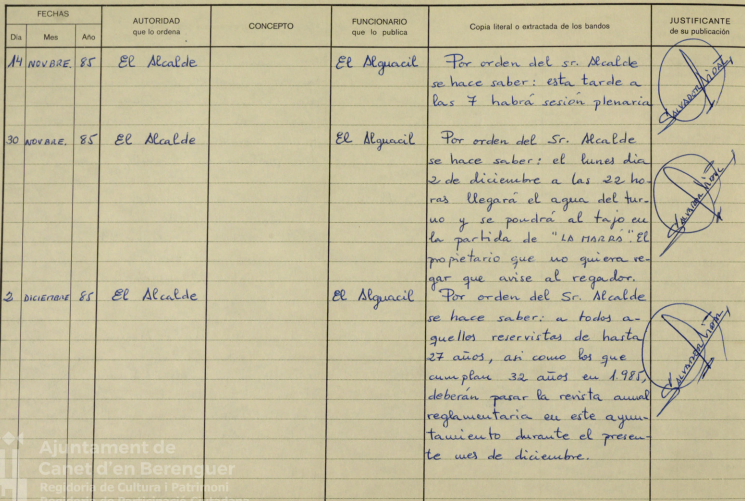 FECHAS
AUTORIDAD
que lo ordena
CONCEPTO
FUNCIONARIO
que lo publica
Copia literal o extractada de los bandos
JUSTIFICANTE
de su publicación
Día Mes Año
14 NOVBRE. 85 El Alcalde El Alguacil Por orden del sr. Alcalde
se hace saber: esta tarde a
las 7 habrá sesión plenaria
SALVADOR VIDAL
30 NOVBRE. 85 El Alcalde El Alguacil Por orden del Sr. Alcalde
se hace saber: el lunes dia
2 de diciembre a las 22 ho-
ras llegará el agua del tur-
no y se pondrá al tajo en
la partida de "LA MARRÁ". El
propietario que no quiera re-
gar que avise al regador.
SALVADOR VIDAL
2 DICIEMBRE 85 El Alcalde El Alguacil Por orden del Sr. Alcalde
se hace saber: a todos a-
quellos reservistas de hasta
27 años, asi como los que
cumplan 32 años en 1.985,
deberán pasar la revista anual
reglamentaria en este ayun-
tamiento durante el presen-
te mes de diciembre.
SALVADOR VIDAL
Ajuntament de
Canet d'en Berenguer
Regidoria de Cultura i Patrimoni